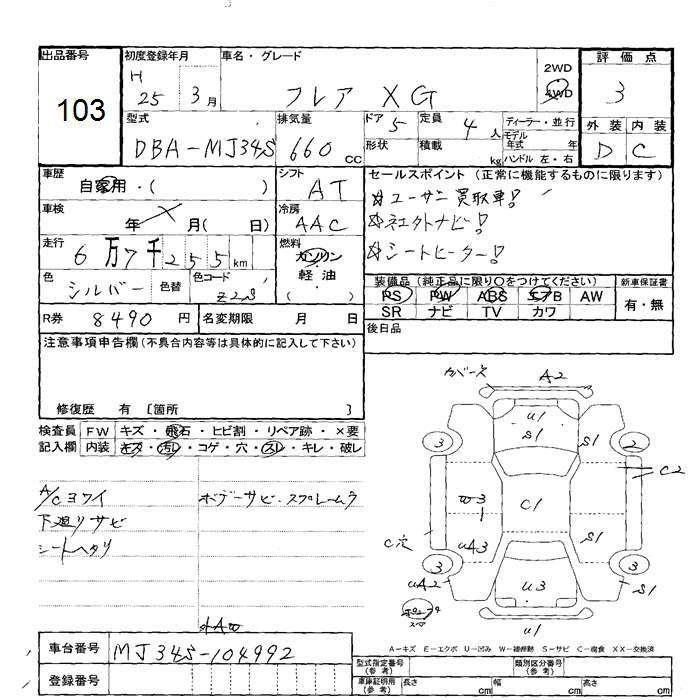 出品番号
103
初度登録年月
H 25 3月
車名・グレード
フレア XG
2WD
4WD
評価点
3
外装 内装
D C
型式
DBA-MJ34S
排気量
660 cc
ドア 5
形状
定員 4人
積載 kg
ディーラー・並行
モデル年式 年
ハンドル 左・右
車歴
自家用・( )
車検
年 月( 日)
走行
6万7千255km
色
シルバー
色替
色コード
Z2S
シフト
AT
冷房
AAC
燃料
ガソリン
軽油
( )
セールスポイント(正常に機能するものに限ります)
☆ユーザー買取車!
☆社外ナビ!
☆シートヒーター!
装備品(純正品に限り〇をつけてください)
PS PW ABS エアB AW
SR ナビ TV カワ
新車保証書
有・無
R券 8490円
名変期限 月 日
後日品
注意事項申告欄(不具合内容等は具体的に記入して下さい)
修復歴 有 〔箇所 〕
検査員記入欄
FW キズ・飛石・ヒビ割・リペア跡・×要
内装 キズ・汚レ・コゲ・穴・スレ・キレ・破レ
A/Cヨワイ
下廻リサビ
シートヘタリ
ボデーサビ・スプレームラ
カバーズ
A2
U1
S1
S1
3
2
C2
W3
1
C1
C穴
UA3
S1
3
3
UA2
U3
S1
スペア
U1
外AW
A-キズ E-エクボ U-凹み W-補修跡 S-サビ C-腐食 XX-交換済
車台番号
MJ34S-104992
登録番号
型式指定番号(参考)
類別区分番号(参考)
車庫証明用(参考)
長さ cm
幅 cm
高さ cm